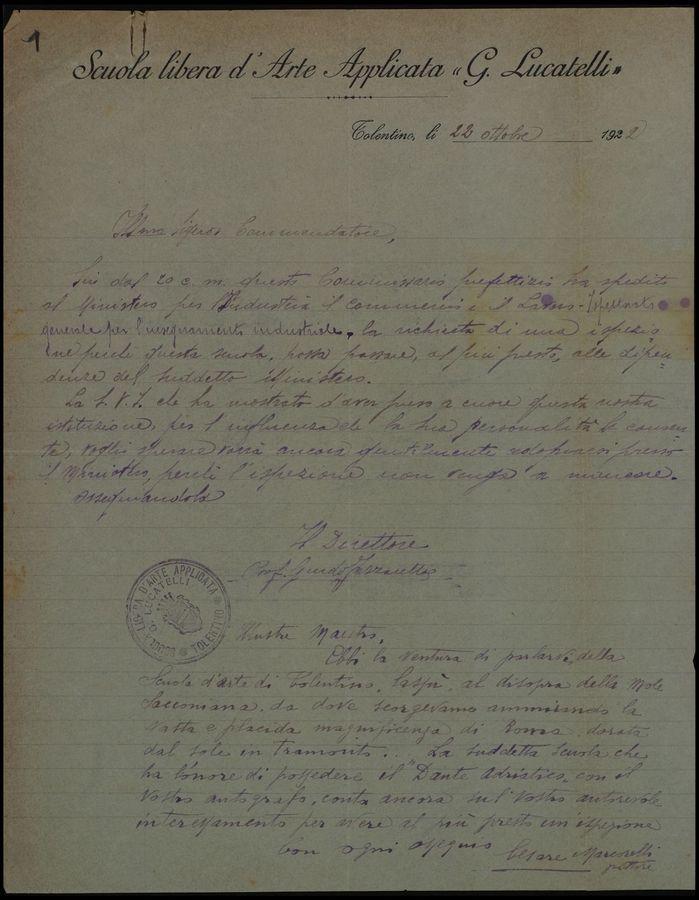 1
Scuola libera d'Arte Applicata «G. Lucatelli»
Tolentino, li 22 ottobre 1922
Ill.mo Signor Commendatore,
Sin dal 20 c. m. questo Commissario prefettizio ha spedito
al Ministero per l'Industria il commercio e il Lavoro - Ispettorato
generale per l'insegnamento industriale, la richiesta di una ispezio
ne perché questa scuola, possa passare, al più presto, alle dipen
denze del suddetto Ministero.
La S. V. I. che ha mostrato d'aver preso a cuore questa nostra
istituzione, per l'influenza che la sua personalità le consen
te, voglio sperare vorrà ancora gentilmente adoperarsi presso
il Ministero, perché l'ispezione non venga a mancare.
Ossequiandola
Il Direttore
Prof. Guido
SCUOLA LIBERA D'ARTE APPLICATA
G. LUCATELLI
TOLENTINO
Illustre Maestro,
Ebbi la ventura di parlarvi della
Scuola d'arte di Tolentino, lassù, al disopra della Mole
Sacconiana, da dove scorgevamo ammirando la
vasta e placida magnificenza di Roma dorata
dal sole in tramonto... La suddetta Scuola che
ha l'onore di possedere il "Dante Adriatico, con il
Vostro autografo, conta ancora sul Vostro autorevole
interessamento per avere al più presto un'ispezione
Con ogni ossequio Cesare Marcorelli
pittore